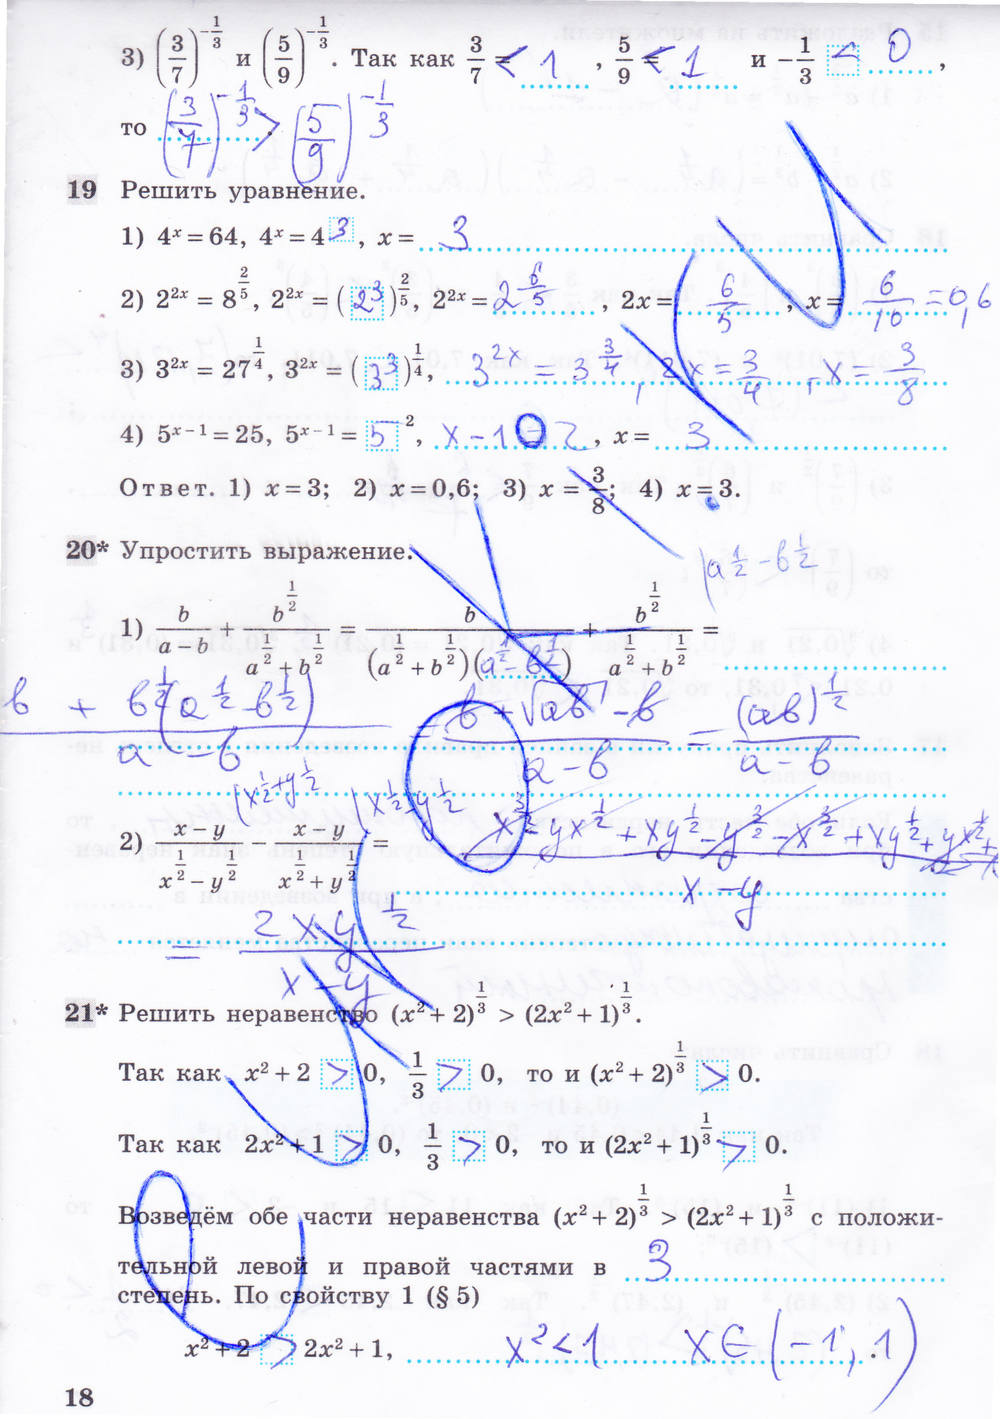 3) (3/7)^(-1/3) и (5/9)^(-1/3). Так как 3/7 < 1, 5/9 < 1 и -1/3 < 0,
то (3/7)^(-1/3) > (5/9)^(-1/3)
19 Решить уравнение.
1) 4^x = 64, 4^x = 4^3, x = 3
2) 2^(2x) = 8^(2/5), 2^(2x) = (2^3)^(2/5), 2^(2x) = 2^(6/5), 2x = 6/5, x = 6/10 = 0,6
3) 3^(2x) = 27^(1/4), 3^(2x) = (3^3)^(1/4), 3^(2x) = 3^(3/4), 2x = 3/4, x = 3/8
4) 5^(x-1) = 25, 5^(x-1) = 5^2, x - 1 = 2, x = 3
Ответ. 1) x = 3; 2) x = 0,6; 3) x = 3/8; 4) x = 3.
20* Упростить выражение.
(a^(1/2) - b^(1/2)
1) b/(a - b) + b^(1/2)/(a^(1/2) + b^(1/2)) = b/((a^(1/2) + b^(1/2))(a^(1/2) - b^(1/2))) + b^(1/2)/(a^(1/2) + b^(1/2)) =
(b + b^(1/2)(a^(1/2) - b^(1/2)))/(a - b) = (b + √ab - b)/(a - b) = (ab)^(1/2)/(a - b)
(x^(1/2) + y^(1/2) (x^(1/2) - y^(1/2)
2) (x - y)/(x^(1/2) - y^(1/2)) - (x - y)/(x^(1/2) + y^(1/2)) = (x^(3/2) - yx^(1/2) + xy^(1/2) - y^(3/2) - x^(3/2) + xy^(1/2) + yx^(1/2)
x - y
= 2xy^(1/2)/(x - y)
21* Решить неравенство (x² + 2)^(1/3) > (2x² + 1)^(1/3).
Так как x² + 2 > 0, 1/3 > 0, то и (x² + 2)^(1/3) > 0.
Так как 2x² + 1 > 0, 1/3 > 0, то и (2x² + 1)^(1/3) > 0.
Возведём обе части неравенства (x² + 2)^(1/3) > (2x² + 1)^(1/3) с положи-
тельной левой и правой частями в 3
степень. По свойству 1 (§ 5)
x² + 2 > 2x² + 1, x² < 1 x ∈ (-1, 1)
18